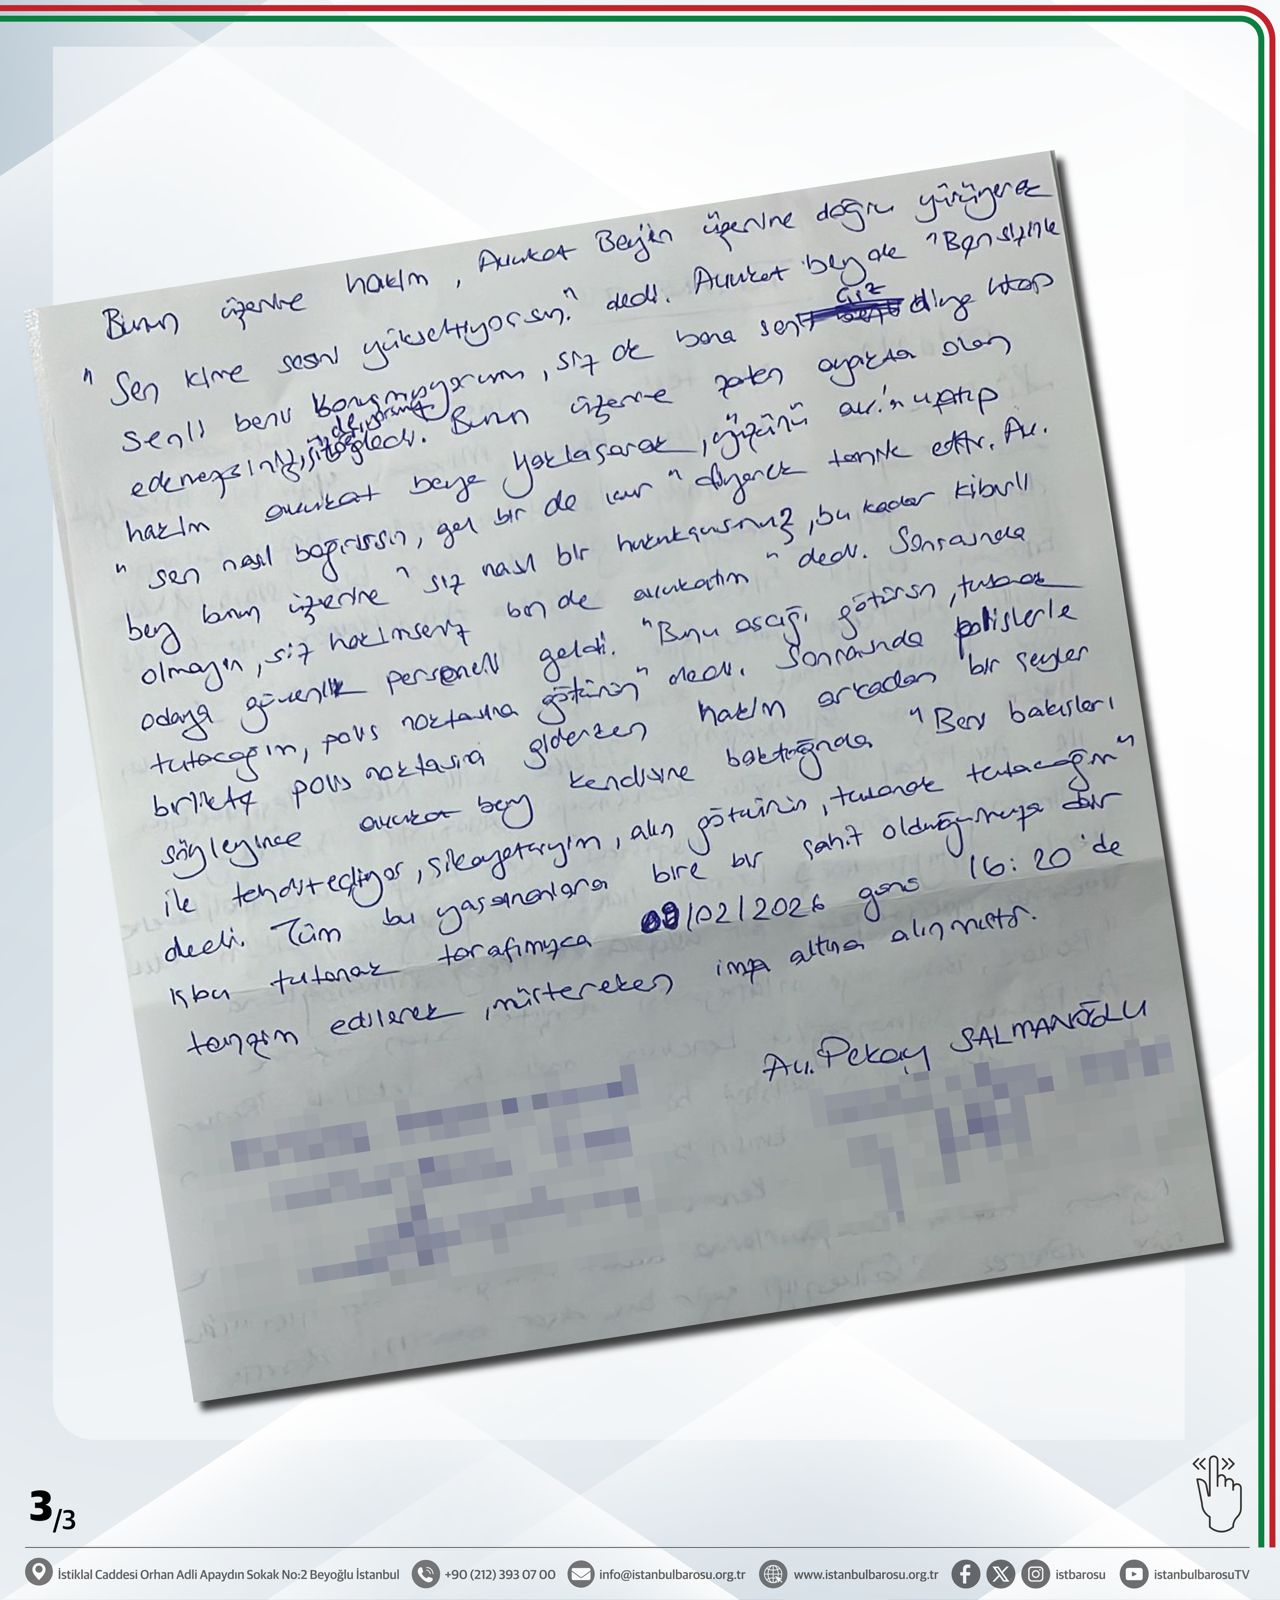 Bunun üzerine hakim, Avukat Bey'in üzerine doğru yürüyerek
"Sen kime sesini yükseltiyorsun." dedi. Avukat bey de "Ben sizinle
senli benli konuşmuyorum, siz de bana senli diye hitap
edemezsiniz, siz diyorsunuz" söyledi. Bunun üzerine zaten ayakta olan
hakim avukat beye yaklaşarak, yüzünü av.'a uzatıp
"sen nasıl bağırırsın, gel bir de vur" diyerek tahrik etti. Av.
bey bunun üzerine "siz nasıl bir hukukçusunuz, bu kadar kibirli
olmayın, siz hakimseniz ben de avukatım" dedi. Sonrasında
odaya güvenlik personeli geldi. "Bunu aşağı götürün, tutanak
tutacağım, polis noktasına götürün" dedi. Sonrasında polislerle
birlikte polis noktasına giderken hakim arkadan bir şeyler
söyleyince avukat bey kendisine baktığında "Beni bakışları
ile tehdit ediyor, şikayetçiyim, alın götürün, tutanak tutacağım"
dedi. Tüm bu yaşananlara bire bir şahit olduğumuza dair
işbu tutanak tarafımızca 09/02/2026 günü 16:20'de
tanzim edilerek, müştereken imza altına alınmıştır.
Av. Pekay SALMANOĞLU
3/3
İstiklal Caddesi Orhan Adli Apaydın Sokak No:2 Beyoğlu İstanbul +90 (212) 393 07 00 info@istanbulbarosu.org.tr www.istanbulbarosu.org.tr istbarosu istanbulbarosuTV